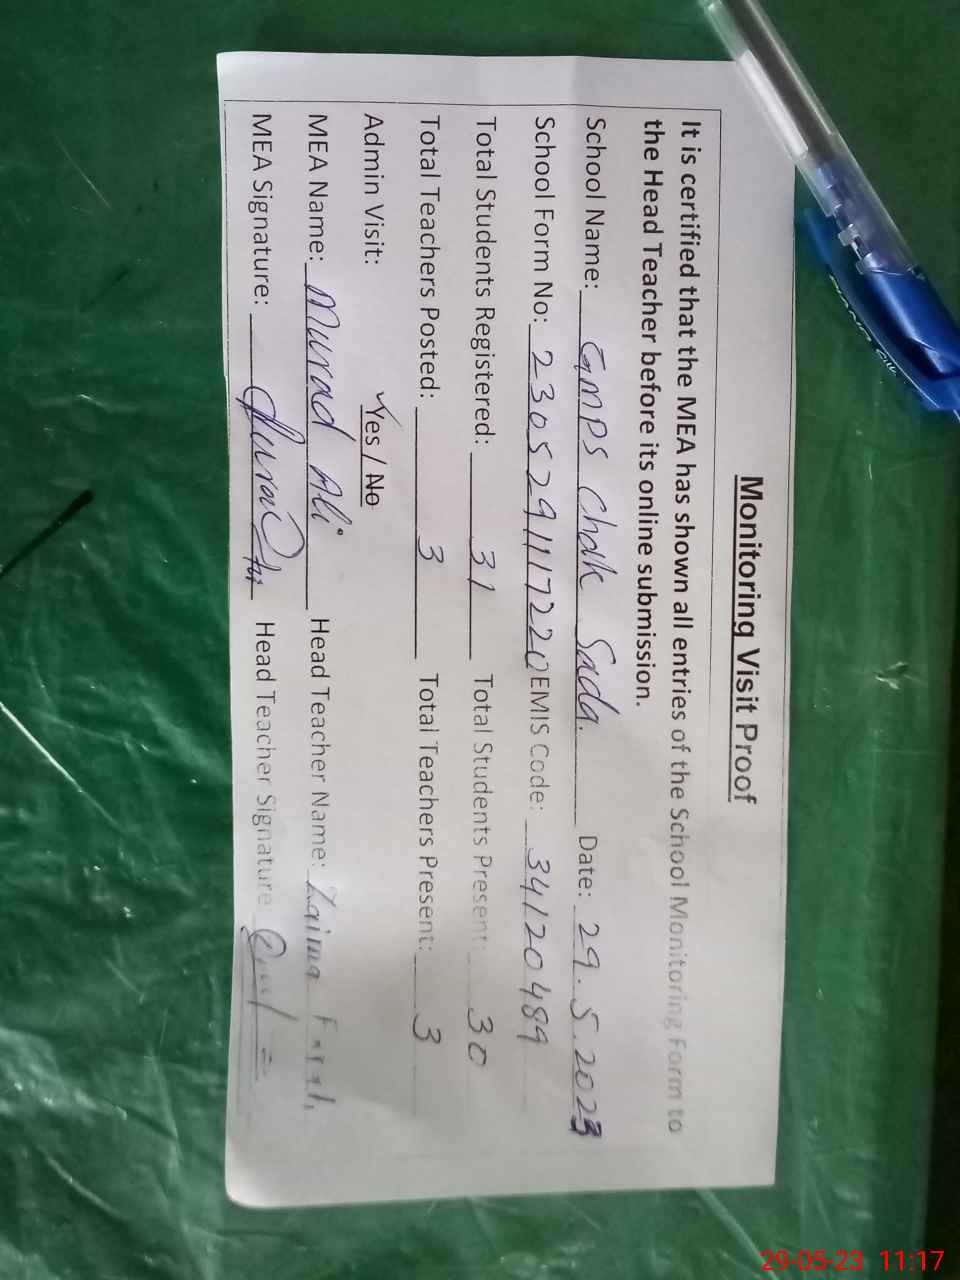 Monitoring Visit Proof
It is certified that the MEA has shown all entries of the School Monitoring Form to
the Head Teacher before its online submission.
School Name: GMPS Chak Sada. Date: 29.5.2023
School Form No: 23052911117220 EMIS Code: 34120489
Total Students Registered: 31 Total Students Present: 30
Total Teachers Posted: 3 Total Teachers Present: 3
Admin Visit: Yes / No
MEA Name: Murad Ali Head Teacher Name: Zaima
MEA Signature: Head Teacher Signature
29-05-23 11:17